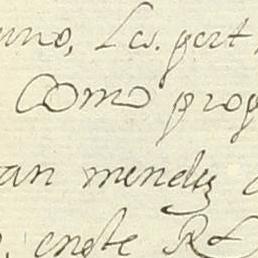 uno, Les. pert
Como prog
an mendez
, eneste Rl